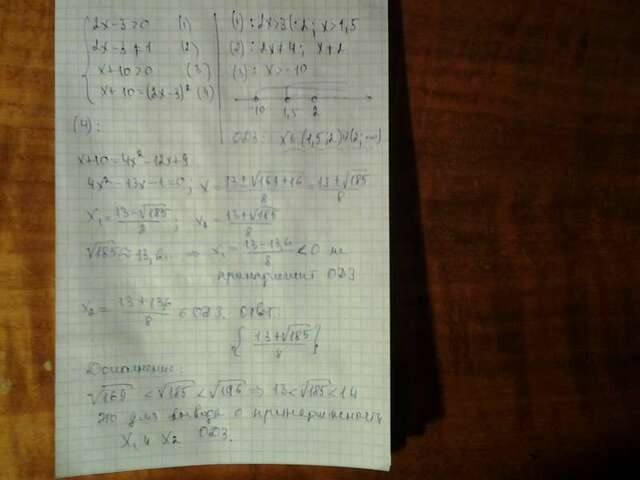 2x-3>0 (1)
2x-3≠1 (2)
x+10>0 (3)
x+10=(2x-3)² (4)
(1): 2x>3 |:2; x>1,5
(2): 2x≠4; x≠2
(3): x>-10
-10 1,5 2
ОДЗ: x∈(1,5;2)∪(2;∞)
(4):
x+10=4x²-12x+9
4x²-13x-1=0; x=(13±√(169+16))/8=(13±√185)/8
x₁=(13-√185)/8; x₂=(13+√185)/8
√185≈13,6... ⇒ x₁=(13-13,6)/8<0 не
принадлежит ОДЗ
x₂=(13+13,6)/8 ∈ ОДЗ. Ответ:
{(13+√185)/8}
Дополнение:
√169<√185<√196 ⇒ 13<√185<14
это для вывода о принадлежность
x₁ и x₂ ОДЗ.